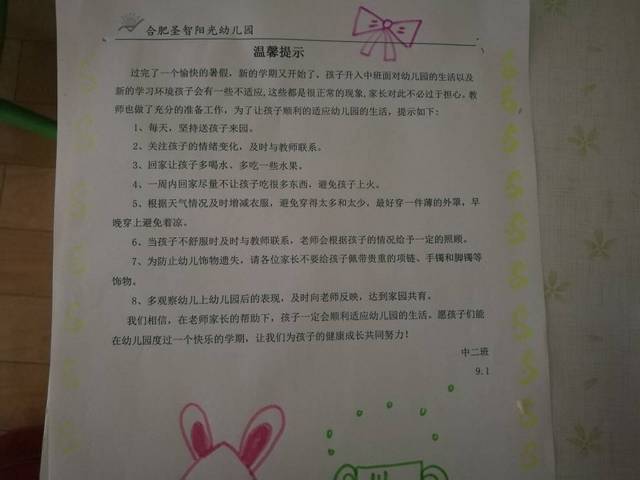 合肥圣智阳光幼儿园
温馨提示
过完了一个愉快的暑假，新的学期又开始了，孩子升入中班面对幼儿园的生活以及
新的学习环境孩子会有一些不适应,这些都是很正常的现象,家长对此不必过于担心。教
师也做了充分的准备工作，为了让孩子顺利的适应幼儿园的生活，提示如下：
1、每天，坚持送孩子来园。
2、关注孩子的情绪变化，及时与教师联系。
3、回家让孩子多喝水、多吃一些水果。
4、一周内回家尽量不让孩子吃很多东西，避免孩子上火。
5、根据天气情况及时增减衣服，避免穿得太多和太少，最好穿一件薄的外罩，早
晚穿上避免着凉。
6、当孩子不舒服时及时与教师联系，老师会根据孩子的情况给予一定的照顾。
7、为防止幼儿饰物遗失，请各位家长不要给孩子佩带贵重的项链、手镯和脚镯等
饰物。
8、多观察幼儿上幼儿园后的表现，及时向老师反映，达到家园共育。
我们相信，在老师家长的帮助下，孩子一定会顺利适应幼儿园的生活。愿孩子们能
在幼儿园度过一个快乐的学期，让我们为孩子的健康成长共同努力！
中二班
9.1